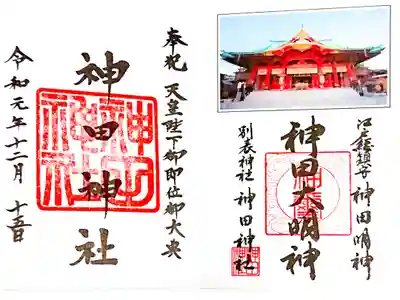 奉祝 天皇陛下御即位御大典
神田神社
令和元年十二月 十五日
江戸総鎮守 神田明神
神田大明神
別表神社 神田神社